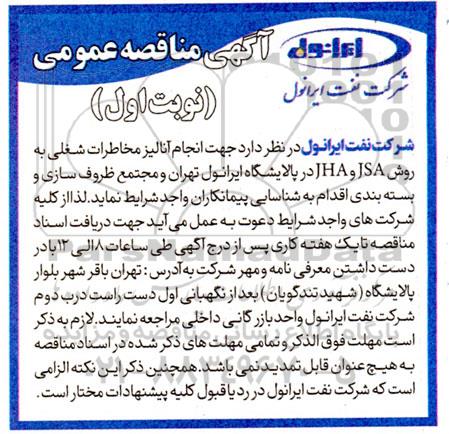 آگهی مناقصه عمومی
(نوبت اول)
ایرانول
شرکت نفت ایرانول
شرکت نفت ایرانول در نظر دارد جهت انجام آنالیز مخاطرات شغلی به
روش JSA و JHA در پالایشگاه ایرانول تهران و مجتمع ظروف سازی و
بسته بندی اقدام به شناسایی پیمانکاران واجد شرایط نماید. لذا از کلیه
شرکت های واجد شرایط دعوت به عمل می آید جهت دریافت اسناد
مناقصه تا یک هفته کاری پس از درج آگهی طی ساعات ۸ الی ۱۲ با در
دست داشتن معرفی نامه و مهر شرکت به آدرس : تهران باقر شهر بلوار
پالایشگاه (شهید تندگویان) بعد از نگهبانی اول دست راست درب دوم
شرکت نفت ایرانول واحد بازرگانی داخلی مراجعه نمایند. لازم به ذکر
است مهلت فوق الذکر و تمامی مهلت های ذکر شده در اسناد مناقصه
به هیچ عنوان قابل تمدید نمی باشد. همچنین ذکر این نکته الزامی
است که شرکت نفت ایرانول در رد یا قبول کلیه پیشنهادات مختار است .